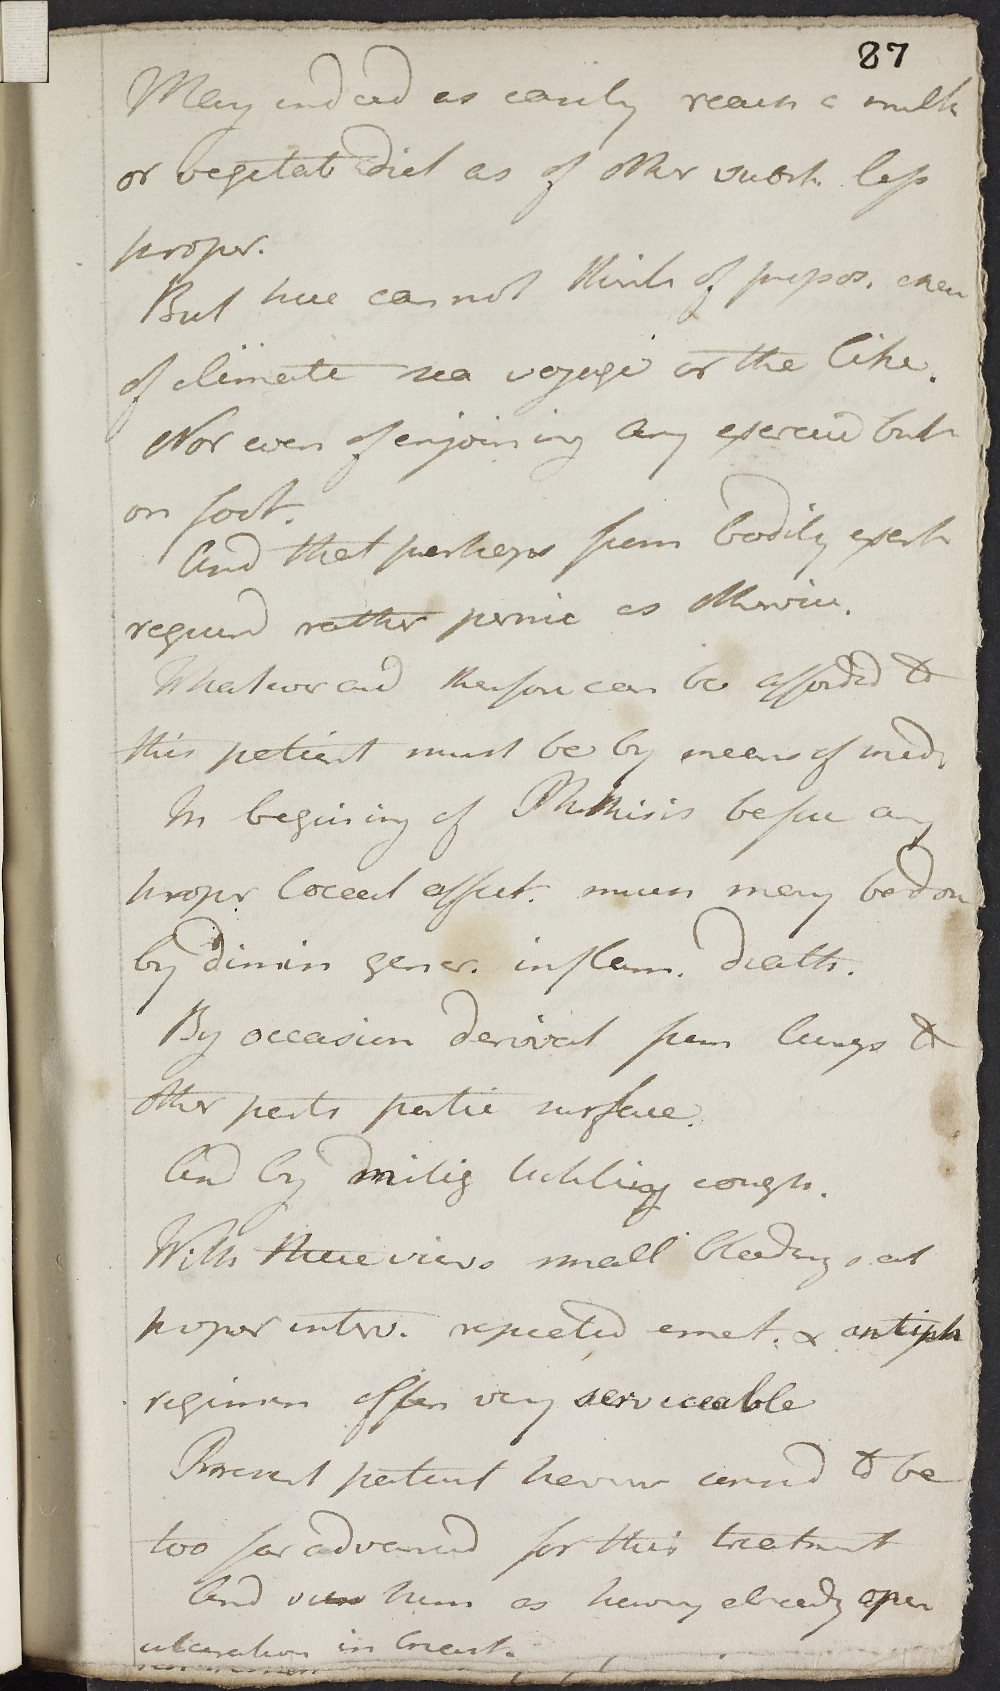 87
May indeed as easily reach a milk
or vegetab diet as of other less
proper.
But here cannot think of propos. chan
of climate sea voyage or the like.
Nor even of enjoining any exercise but
on foot.
And that perhaps from bodily exert
requird rather pernic as otherwise.
Whatever aid therefore can be afforded to
this patient must be by means of med.
In begining of Phthisis before any
proper local affect. much may be done
by dimin gener. inflam. diath.
By occasion derivat from lungs to
other parts partic surface.
And by mitig tickling cough.
With these views small bleedings at
proper interv. repeated emet. & antiph
regimen often very serviceable
Present patient however seemd to be
too far advanced for this treatment
And view him as having already open
ulceration in breast.